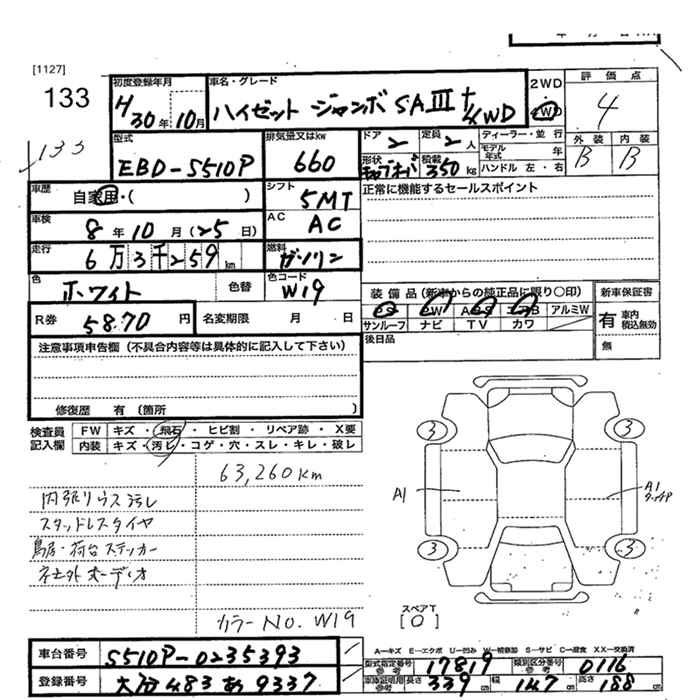 [1127]
133
133
初度登録年月
H30年10月
車名・グレード
ハイゼット ジャンボ SAⅢt 4WD
2WD
4WD
評価点
4
型式
EBD-S510P
排気量又はkw
660
ドア
2
定員
2人
ディーラー・並行
モデル年式 年
ハンドル 左・右
形状
キャブオーバ
積載
350kg
外装
B
内装
B
車歴
自家用・( )
シフト
5MT
正常に機能するセールスポイント
車検
8年10月(25日)
AC
AC
走行
6万3千259km
燃料
ガソリン
色
ホワイト
色替
色コード
W19
装備品(新車からの純正品に限り〇印)
新車保証書
PS
PW
ABS
エアB
アルミW
サンルーフ
ナビ
TV
カワ
有
車内
積込無効
無
R券
5870円
名変期限 月 日
後日品
注意事項申告欄(不具合内容等は具体的に記入して下さい)
修復歴 有(箇所
検査員
記入欄
FW
キズ・飛石・ヒビ割・リペア跡・X要
内装
キズ・汚レ・コゲ・穴・スレ・キレ・破レ
63,260km
内張りウス汚レ
スタッドレスタイヤ
鳥居・荷台ステッカー
社外オーディオ
カラーNo. W19
3
3
A1
A1
タッチP
3
3
スペアT
[0]
車台番号
S510P-0235393
登録番号
大分 483 あ 9337
A-キズ E-エクボ U-凹み W-補修跡 S-サビ C-腐食 XX-交換済
型式指定番号
17819
類別区分番号
0116
車庫証明用
長さ
339cm
幅
147cm
高さ
188cm